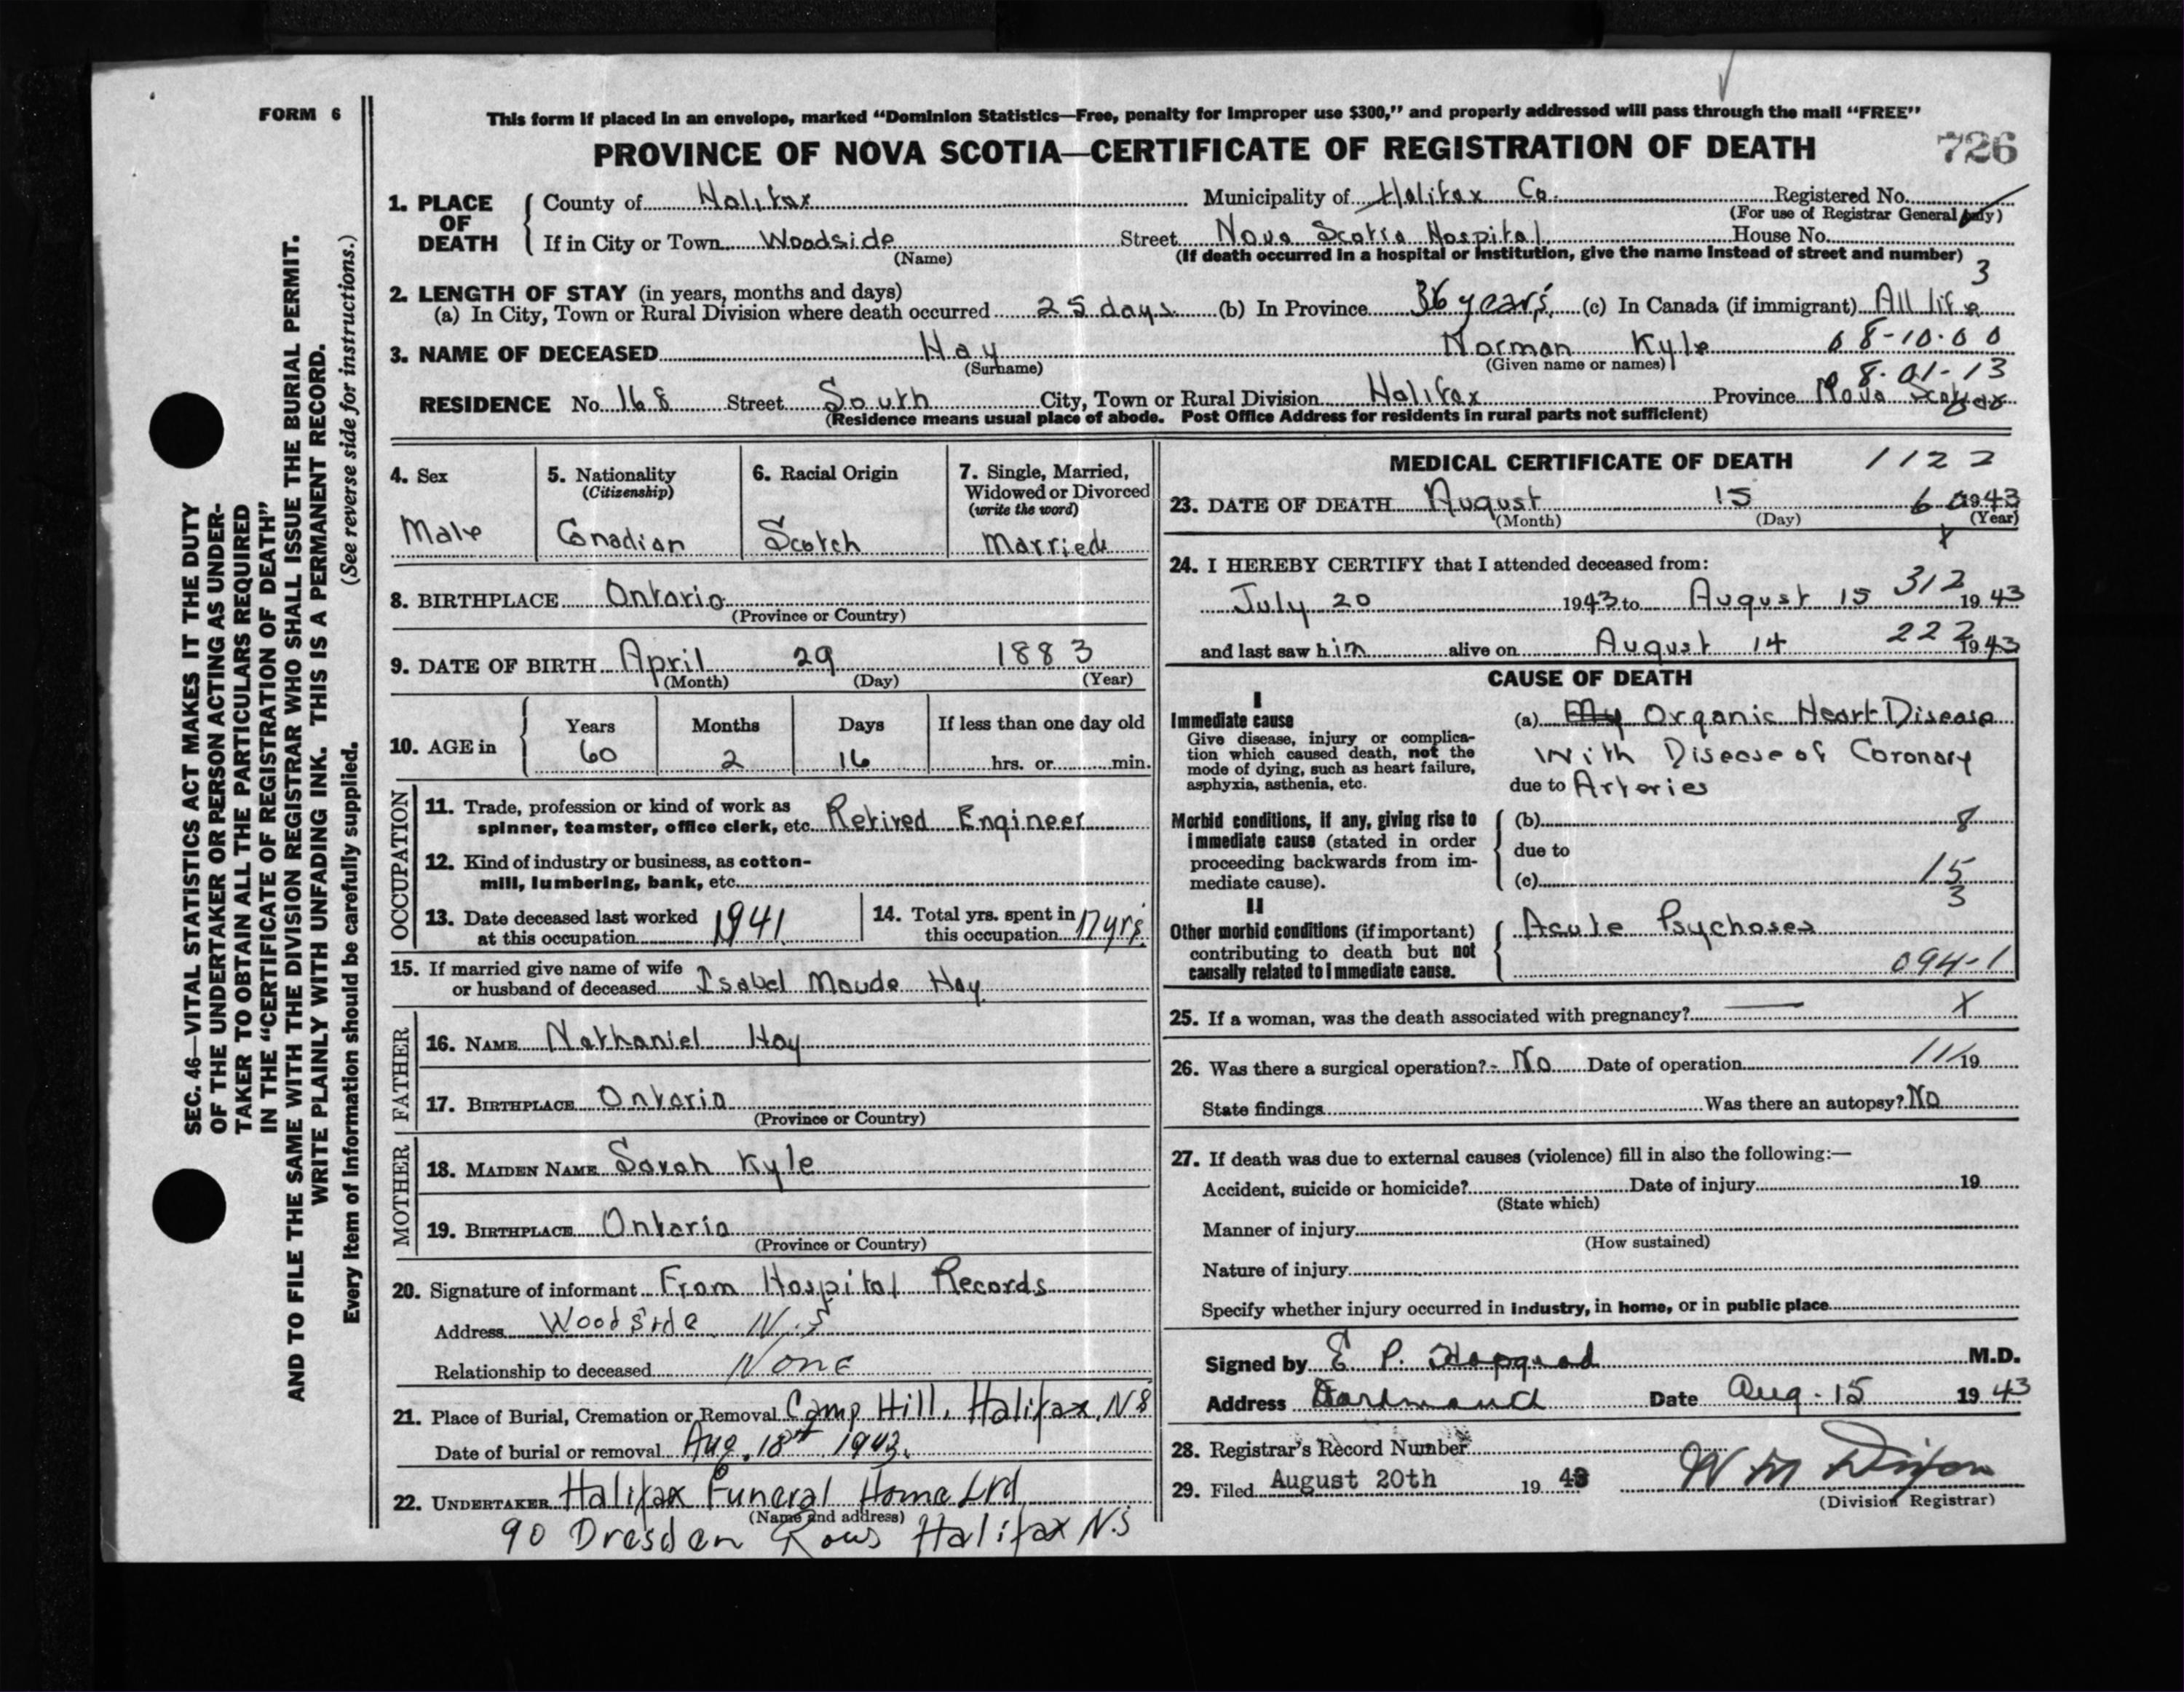 FORM 6
This form if placed in an envelope, marked "Dominion Statistics—Free, penalty for improper use $300," and properly addressed will pass through the mail "FREE"
PROVINCE OF NOVA SCOTIA—CERTIFICATE OF REGISTRATION OF DEATH 726
SEC. 46—VITAL STATISTICS ACT MAKES IT THE DUTY
OF THE UNDERTAKER OR PERSON ACTING AS UNDER-
TAKER TO OBTAIN ALL THE PARTICULARS REQUIRED
IN THE "CERTIFICATE OF REGISTRATION OF DEATH"
AND TO FILE THE SAME WITH THE DIVISION REGISTRAR WHO SHALL ISSUE THE BURIAL PERMIT.
WRITE PLAINLY WITH UNFADING INK. THIS IS A PERMANENT RECORD.
Every item of information should be carefully supplied. (See reverse side for instructions.)
1. PLACE OF DEATH County of Halifax Municipality of Halifax Co. Registered No.
(For use of Registrar General only)
If in City or Town Woodside Street Nova Scotia Hospital House No.
(Name) (If death occurred in a hospital or institution, give the name instead of street and number)
3
2. LENGTH OF STAY (in years, months and days)
(a) In City, Town or Rural Division where death occurred 25 days (b) In Province 36 years (c) In Canada (if immigrant) All life
3. NAME OF DECEASED Hay Norman Kyle 08-10-00
(Surname) (Given name or names)
08-01-13
RESIDENCE No 168 Street South City, Town or Rural Division Halifax Province Nova Scotia
(Residence means usual place of abode. Post Office Address for residents in rural parts not sufficient)
4. Sex Male
5. Nationality (Citizenship) Canadian
6. Racial Origin Scotch
7. Single, Married, Widowed or Divorced (write the word) Married
8. BIRTHPLACE Ontario
(Province or Country)
9. DATE OF BIRTH April 29 1883
(Month) (Day) (Year)
10. AGE in Years Months Days If less than one day old
60 2 16 hrs. or min.
OCCUPATION
11. Trade, profession or kind of work as
spinner, teamster, office clerk, etc. Retired Engineer
12. Kind of industry or business, as cotton-
mill, lumbering, bank, etc.
13. Date deceased last worked
at this occupation 1941
14. Total yrs. spent in
this occupation 17 yrs
15. If married give name of wife
or husband of deceased Isabel Maude Hay
FATHER
16. NAME Nathaniel Hay
17. BIRTHPLACE Ontario
(Province or Country)
MOTHER
18. MAIDEN NAME Sarah Kyle
19. BIRTHPLACE Ontario
(Province or Country)
20. Signature of informant From Hospital Records
Address Woodside N.S
Relationship to deceased None
21. Place of Burial, Cremation or Removal Camp Hill, Halifax, NS
Date of burial or removal Aug. 18th 1943.
22. UNDERTAKER Halifax Funeral Home Ltd
(Name and address)
90 Dresden Row Halifax N.S
MEDICAL CERTIFICATE OF DEATH 1122
23. DATE OF DEATH August 15 60 1943
(Month) (Day) (Year)
X
24. I HEREBY CERTIFY that I attended deceased from:
312
July 20 1943 to August 15 1943
222
and last saw him alive on August 14 1943
CAUSE OF DEATH
I
Immediate cause
Give disease, injury or complica-
tion which caused death, not the
mode of dying, such as heart failure,
asphyxia, asthenia, etc.
(a) My Organic Heart Disease
With Disease of Coronary
due to Arteries
Morbid conditions, if any, giving rise to
immediate cause (stated in order
proceeding backwards from im-
mediate cause).
(b) 8
due to
(c) 15
3
II
Other morbid conditions (if important)
contributing to death but not
causally related to immediate cause.
Acute Psychoses
094-1
25. If a woman, was the death associated with pregnancy? — X
26. Was there a surgical operation?- No Date of operation 11/19
State findings Was there an autopsy? No
27. If death was due to external causes (violence) fill in also the following:—
Accident, suicide or homicide? Date of injury 19
(State which)
Manner of injury
(How sustained)
Nature of injury
Specify whether injury occurred in industry, in home, or in public place
Signed by E P. Hopgood M.D.
Address Dartmouth Date Aug. 15 1943
28. Registrar's Record Number
29. Filed August 20th 1943 W M Dixon
(Division Registrar)